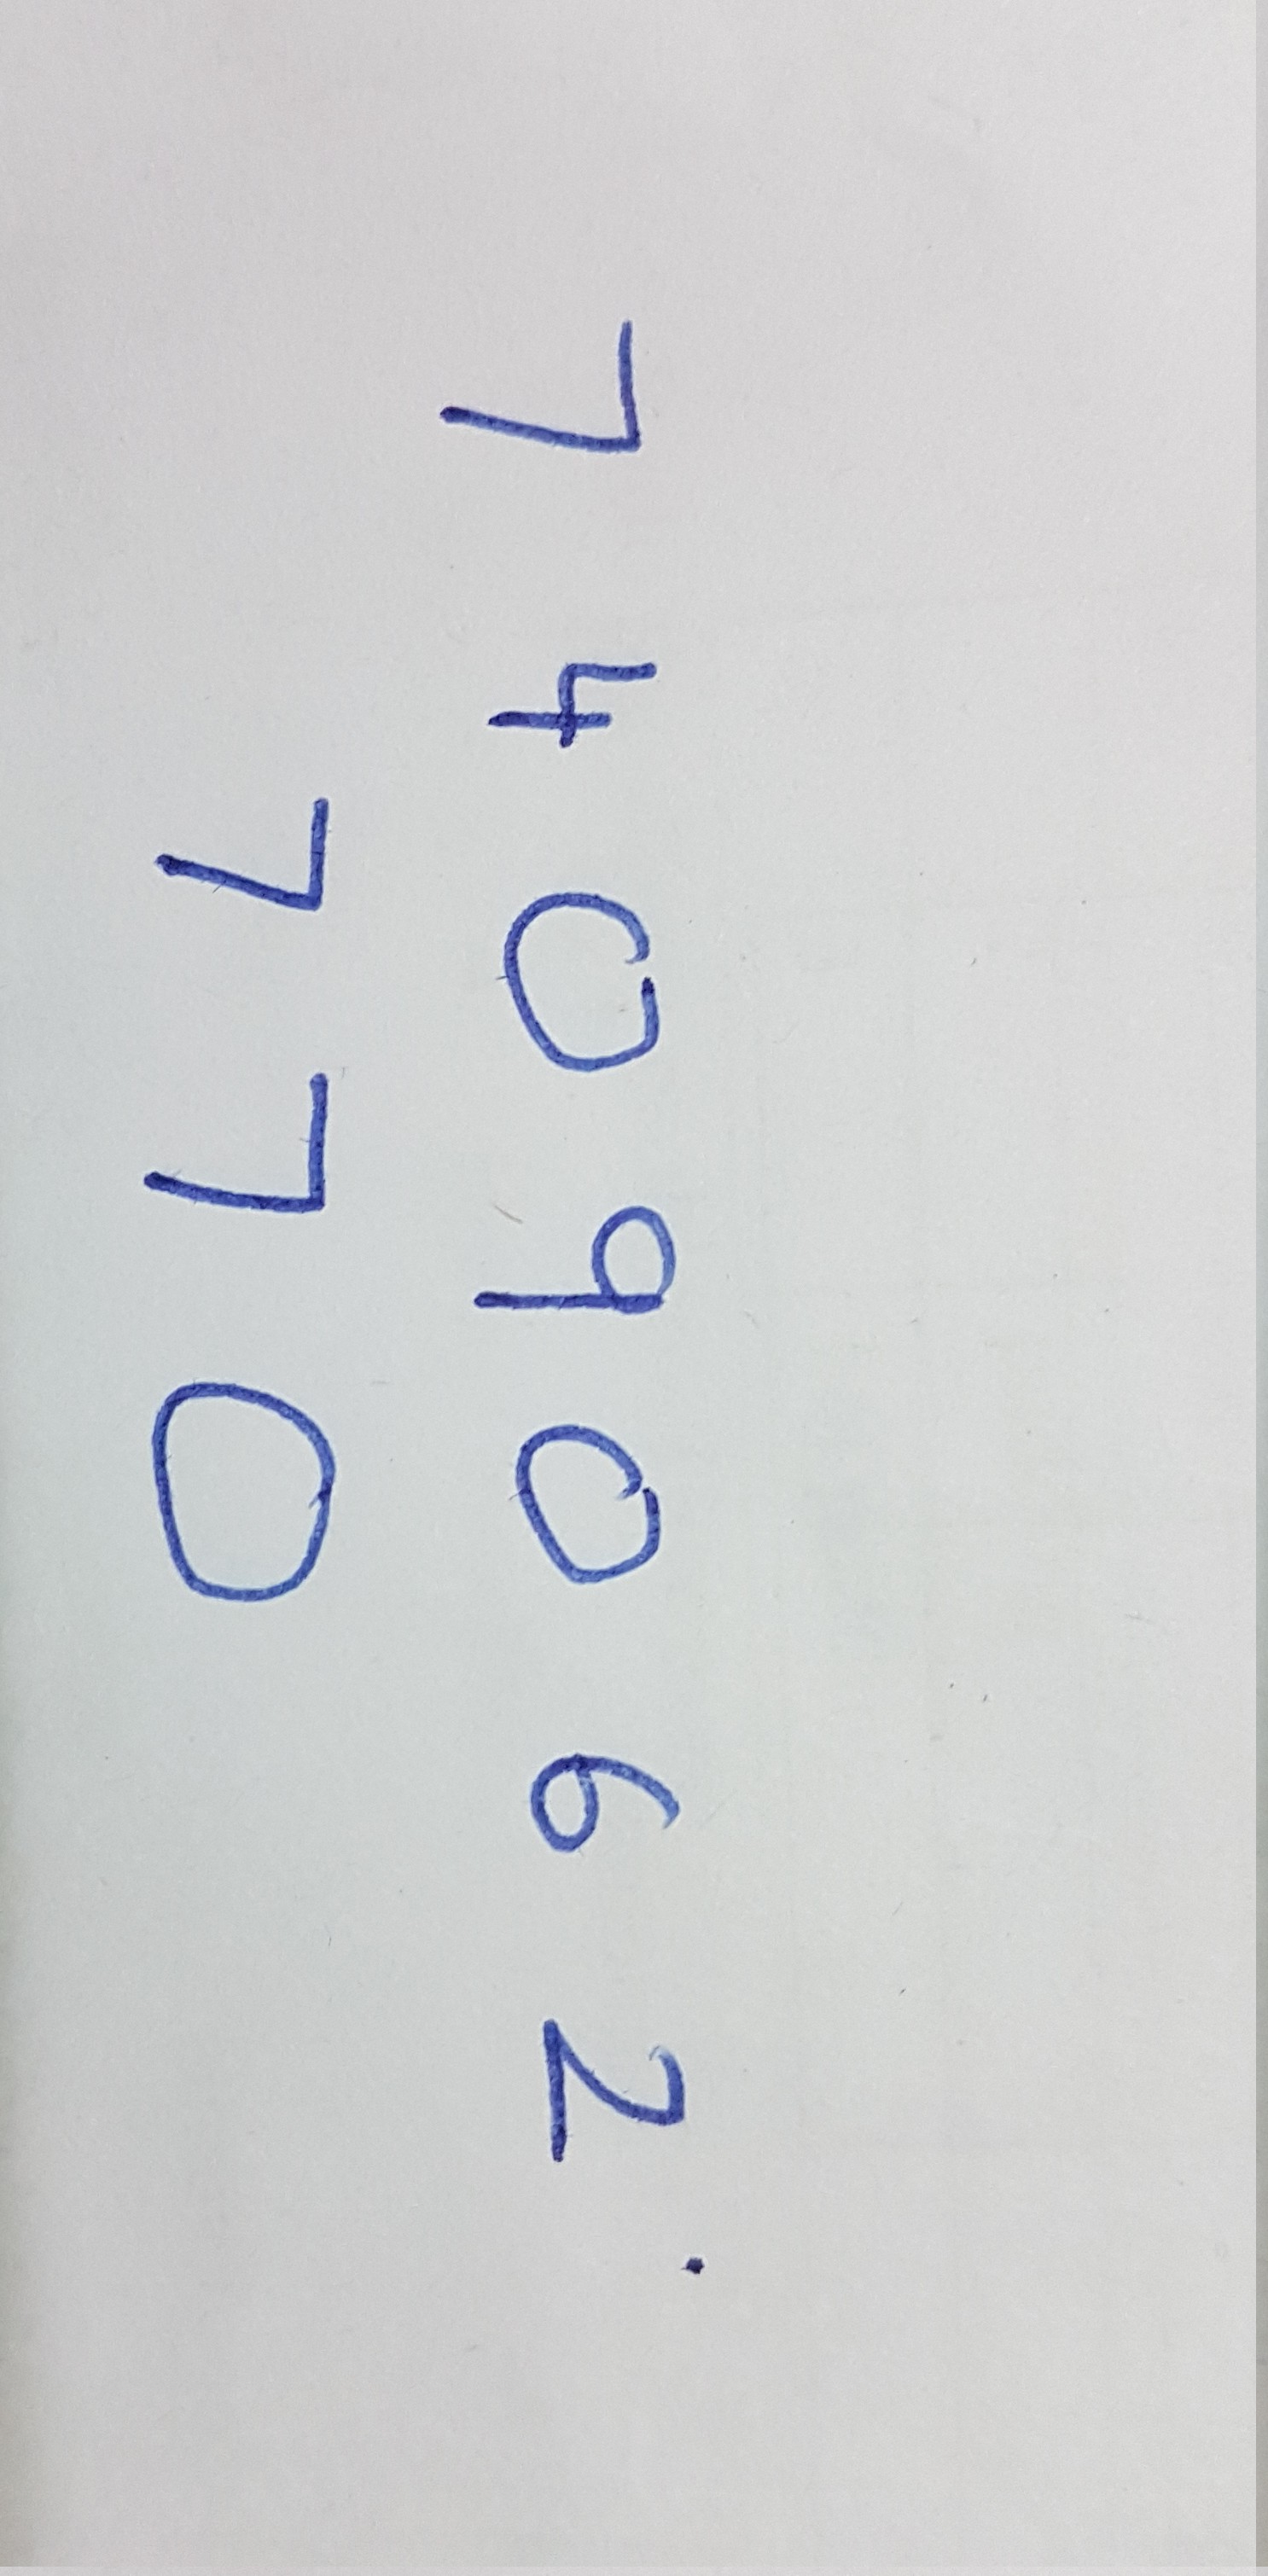 7 4 0 9 0 6 2 .
7 7 0